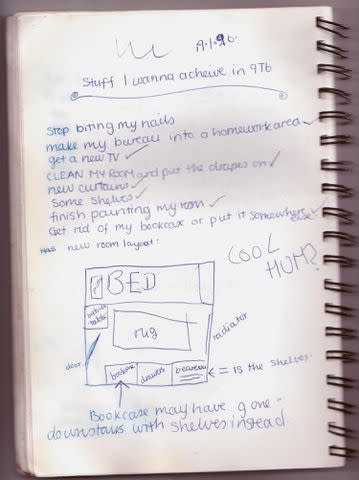 A.1.96.
Stuff I wanna acheive in 9T6
Stop biting my nails
make my bureau into a homework area ✓
get a new TV ✓
CLEAN MY ROOM and put the drapes on ✓
new curtains ✓
Some shelves ✓
finish painting my room ✓
Get rid of my bookcase or put it somewhere else ✓
new room layout:
COOL
HUH?
BED
bedside
table
rug
radiator
door
bookcase
drawers
bureau
= IS the shelves.
Bookcase may have gone
downstairs with shelves instead